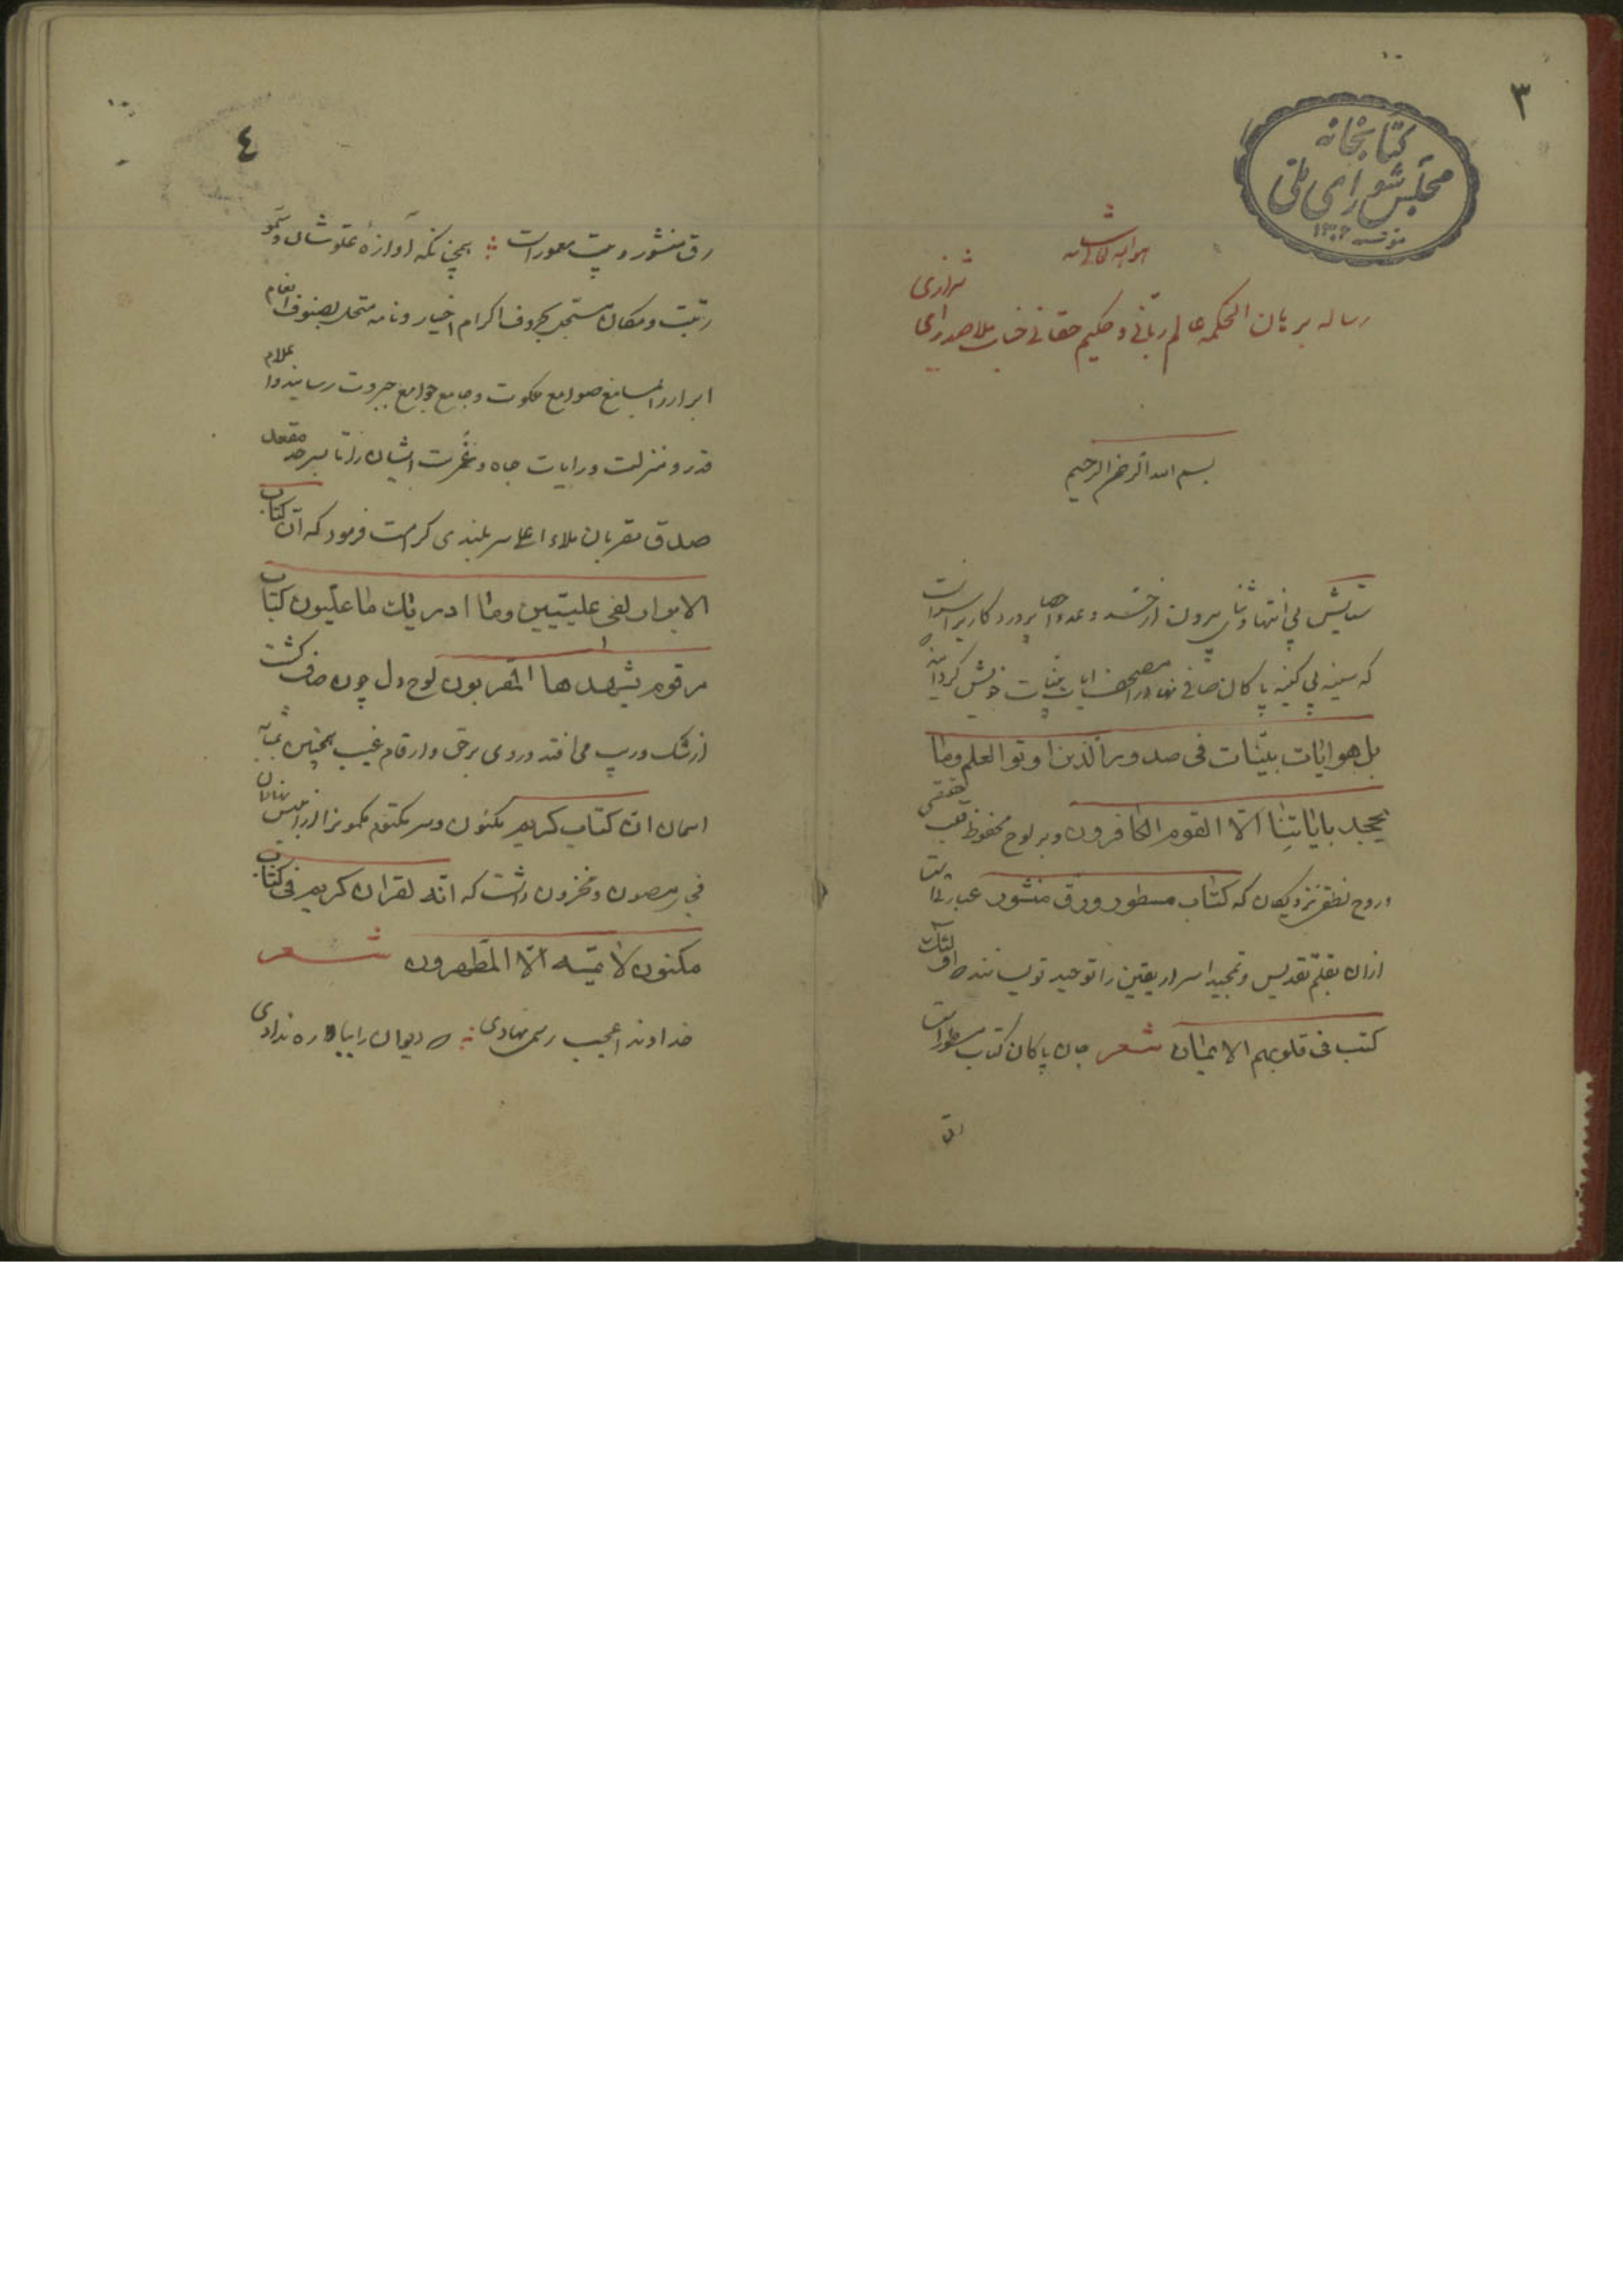 ٣
کتابخانه
مجلس شورای ملی
١٣٠٢
هو الله تعالی شانه
شیرازی
رساله بریان الحکمه عالم ربّانی و حکیم حقانی جناب ملا صدرای
بسم الله الرحمن الرحیم
ستایش بی انتها و ثنای بیرون از حد و عد و احصا پروردگاریرا سزاست
که سینه بی کینه پاکان صافی نهاد را مصحف ایات بینات خویش گردانید
بل هو ایات بیّنات فی صدور الّذین اوتوا العلم وما
یجحد بایاتنا الّا القوم الکافرون و بر لوح محفوظ قلب حقیقی
و روح نطقی نزدیکان که کتاب مسطور و رق منشور عبارتست
ازان بقلم تقدیس و تمجید اسرار یقین را توحید نویسانند اولئک
کتب فی قلوبهم الایمان شعر جان پاکان کتاب مسطور است
رق
٤
رق منشور و بیت معمور است همچنانکه آوازهٔ علو شان و سمو
رتبت و مکان بحروف اکرام اخیار و نامه بصنوف انعام
ابرار را بمسامع صوامع ملکوت و مجامع جوامع جبروت رسانید و اعلام
قدر و منزلت و رایات جاه و ایشان را تا سرحد مقعد
صدق مقربان ملاء اعلی سربلندی کرامت فرمود که انّ کتاب
الابرار لفی علیّیین وما ادریک ما علیّون کتاب
مرقوم یشهدها المقربون لوح دل چون صاف گشت
از شک و ریب می افتد در وی برق و ارقام غیب همچنین بمثابه
اسمان ان کتاب کریم مکنون و سر مکتوم
مصون و مخزون داشت که انّه لقران کریم فی کتاب
مکنون لا یمسّه الّا المطّهرون شعر
خداوندا عجب رسمی نهادی دیوان را ره ندادی